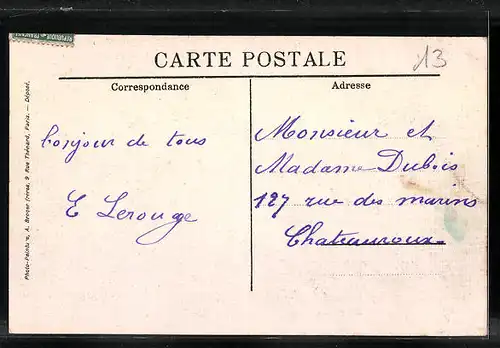 REPUBLIQUE FRANÇAISE
CARTE POSTALE
13
Correspondance
Adresse
bonjour de tous
E Lerouge
Monsieur et
Madame Dubois
127 rue des marins
Chateauroux
Photo-Peinture, A. Breger frères, 9 Rue Thénard, Paris. — Déposé.